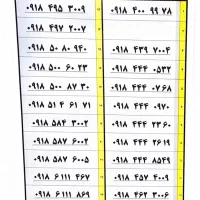 ۰۹۱۸ ۴۹۵ ۳۰۰۹ ۰۹۱۸ ۴۰۰ ۹۹ ۷۸
۰۹۱۸ ۴۹۷ ۲۰۰۷
۰۹۱۸ ۵۰ ۸۰ ۹۴۰ ۰۹۱۸ ۴۳۹ ۷۰۰۴
۰۹۱۸ ۵۰۰ ۶۰ ۲۳ ۰۹۱۸ ۴۴۴ ۰۵۳۲
۰۹۱۸ ۵۰۰ ۸۷ ۳۰ ۰۹۱۸ ۴۴۴ ۰۷۶۸
۰۹۱۸ ۵۱ ۴ ۶۱ ۷۱ ۰۹۱۸ ۴۴۴ ۰۹۷۰
۰۹۱۸ ۵۸۴ ۳۰۰۲ ۰۹۱۸ ۴۴۴ ۲۳۶۰
۰۹۱۸ ۵۸۷ ۶۰۰۲ ۰۹۱۸ ۴۴۴ ۲۶۱۹
۰۹۱۸ ۵۸۷ ۶۰۰۵ ۰۹۱۸ ۴۴۴ ۸۵۴۹
۰۹۱۸ ۶۱۱۱ ۴۶۷ ۰۹۱۸ ۴۵۷ ۴۰۰۹
۰۹۱۸ ۶۱۱۱ ۸۶۹ ۰۹۱۸ ۴۶۲ ۳۰۰۶